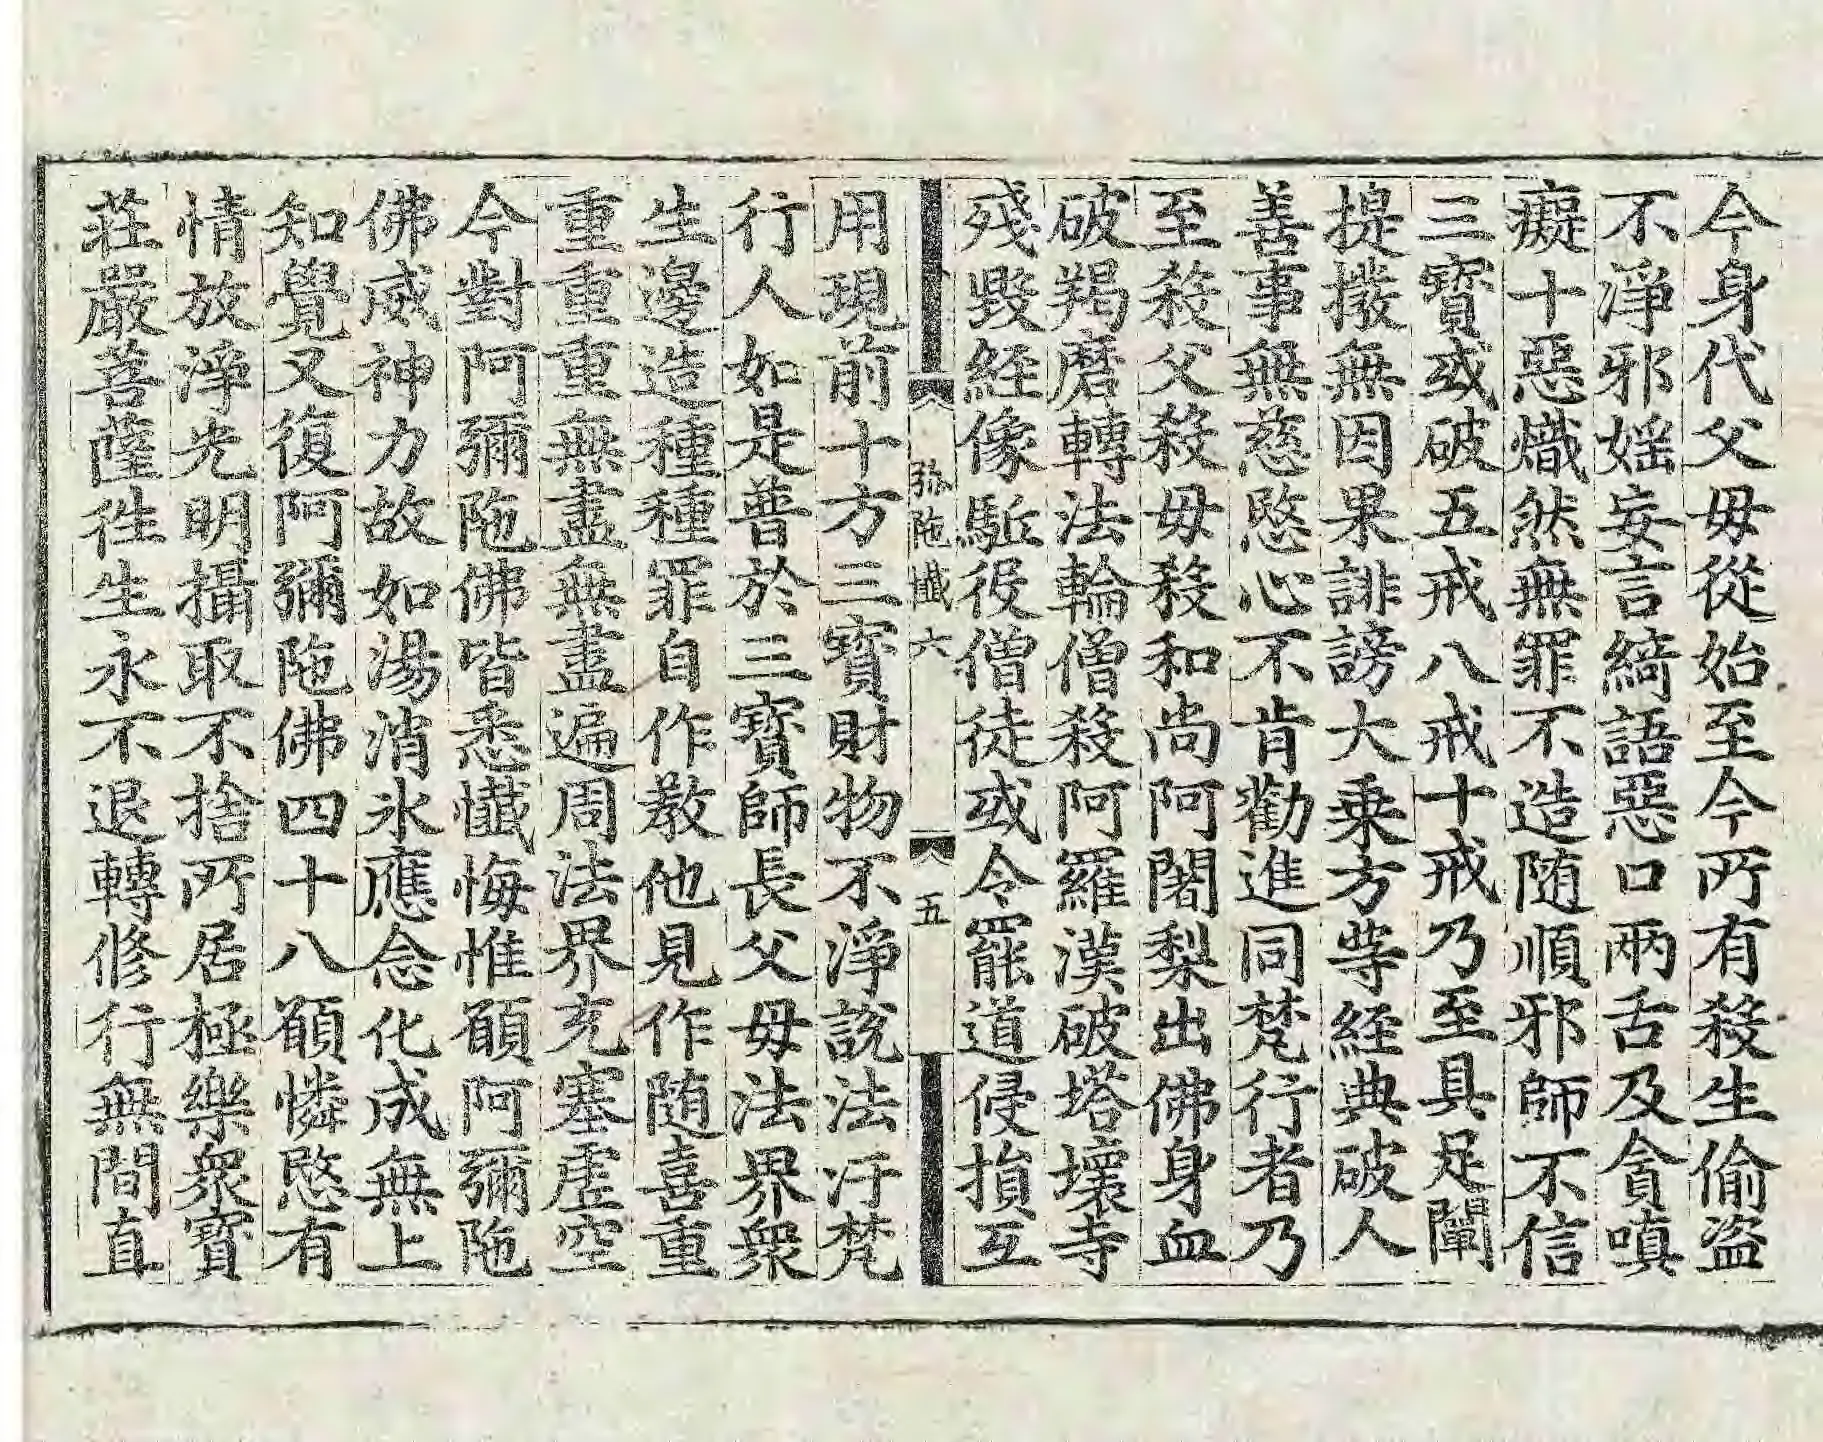 今身代父毋從始至今所有殺生偷盗
不淨邪婬妄言綺語惡口兩舌及貪嗔
癡十惡熾然無罪不造随順邪師不信
三寶或破五戒八戒十戒乃至具足闡
提撥無因果誹謗大乗方等経典破人
善事無慈愍心不肯勸進同梵行者乃
至殺父殺毋殺和尚阿闍梨出佛身血
破羯磨轉法輪僧殺阿羅漢破塔壞寺
殘毀経像駈役僧徒或令罷道侵損互
弥陁懺六 五
用現前十方三寶財物不淨說法汙梵
行人如是普於三寶師長父毋法界衆
生邊造種種罪自作教他見作随喜重
重重重無盡無盡遍周法界充塞虛空
今對阿彌陁佛皆悉懺悔惟願阿彌陁
佛威神力故如湯消氷應念化成無上
知覺又復阿彌陁佛四十八願憐愍有
情放淨光明攝取不捨所居極樂衆寶
莊嚴菩薩徃生永不退轉修行無間直